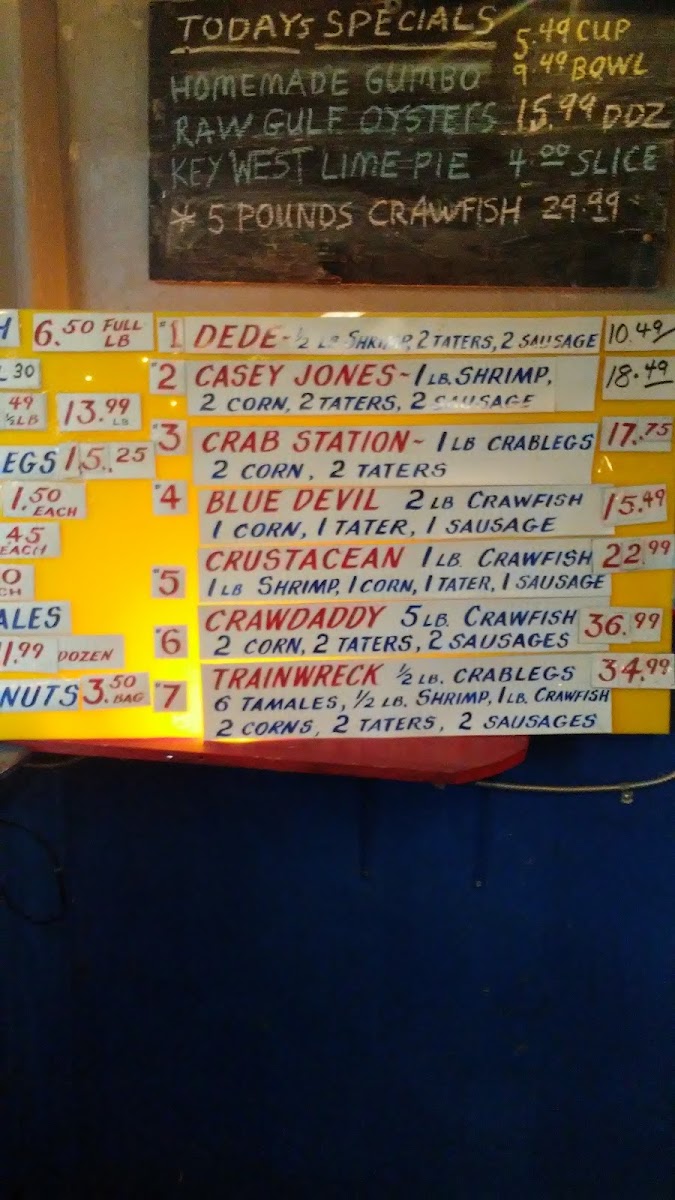 TODAYS SPECIALS
5.49 CUP
HOMEMADE GUMBO 9.49 BOWL
RAW GULF OYSTERS 15.99 DOZ
KEY WEST LIME PIE 4.00 SLICE
* 5 POUNDS CRAWFISH 29.99
6.50 FULL LB
30
49 ½LB 13.99 LB
EGS 15.25
1.50 EACH
45 EACH
ALES
1.99 DOZEN
NUTS 3.50 BAG
#1 DEDE-½ LB SHRIMP, 2 TATERS, 2 SAUSAGE 10.49
#2 CASEY JONES~1 LB. SHRIMP, 18.49
2 CORN, 2 TATERS, 2 SAUSAGE
#3 CRAB STATION~ 1 LB CRABLEGS 17.75
2 CORN, 2 TATERS
#4 BLUE DEVIL 2 LB CRAWFISH 15.49
1 CORN, 1 TATER, 1 SAUSAGE
#5 CRUSTACEAN 1 LB. CRAWFISH 22.99
1 LB SHRIMP, 1 CORN, 1 TATER, 1 SAUSAGE
#6 CRAWDADDY 5 LB. CRAWFISH 36.99
2 CORN, 2 TATERS, 2 SAUSAGES
#7 TRAINWRECK ½ LB. CRABLEGS 34.99
6 TAMALES, ½ LB. SHRIMP, 1 LB. CRAWFISH
2 CORNS, 2 TATERS, 2 SAUSAGES